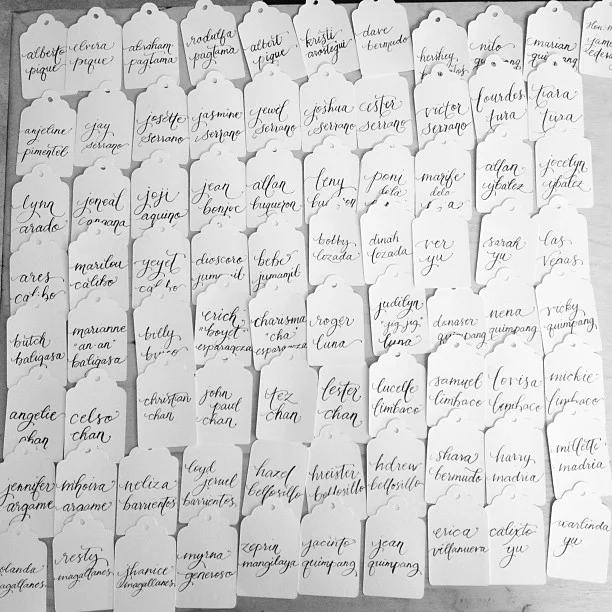 alberto
pique
elvera
pique
abraham
pagtama
rodulfa
pagtama
albert
pique
kristi
arostegui
dave
bermudo
hershey
nilo
marian
anjeline
pimentel
jay
serrano
josette
serrano
jasmine
serrano
jewel
serrano
joshua
serrano
cester
serrano
victor
serrano
lourdes
tura
tiara
tura
lynn
arado
joneal
joji
aquino
jean
bonjoc
allan
buqueron
leny
poni
dela
marife
dela
allan
ybalez
jocelyn
ybalez
ares
marilou
calibo
yeyet
dioscoro
bebe
jumamil
bobby
lozada
dinah
lozada
ver
yu
sarah
yu
las
venas
butch
baligasa
marianne
"an-an"
baligasa
billy
erich
"boyet"
esparagoza
charisma
"cha"
esparagoza
roger
luna
judilyn
"jig-jig"
luna
donason
quimpang
nena
quimpang
vicky
quimpang
angelie
chan
celso
chan
christian
chan
john
paul
chan
tez
chan
lester
chan
lucelle
limbaco
samuel
limbaco
lovisa
limbaco
mickie
limbaco
jennifer
argame
mhoira
argame
neliza
barrientos
loyd
jeruel
barrientos
hazel
bellosillo
hreister
bellosillo
hdrew
bellosillo
shara
bermudo
harry
madria
millette
madria
magallanes
resty
magallanes
jhanice
magallanes
myrna
generoso
zeprin
mangilaya
jacinto
quimpang
jean
quimpang
erica
villanueva
calixto
yu
warlinda
yu